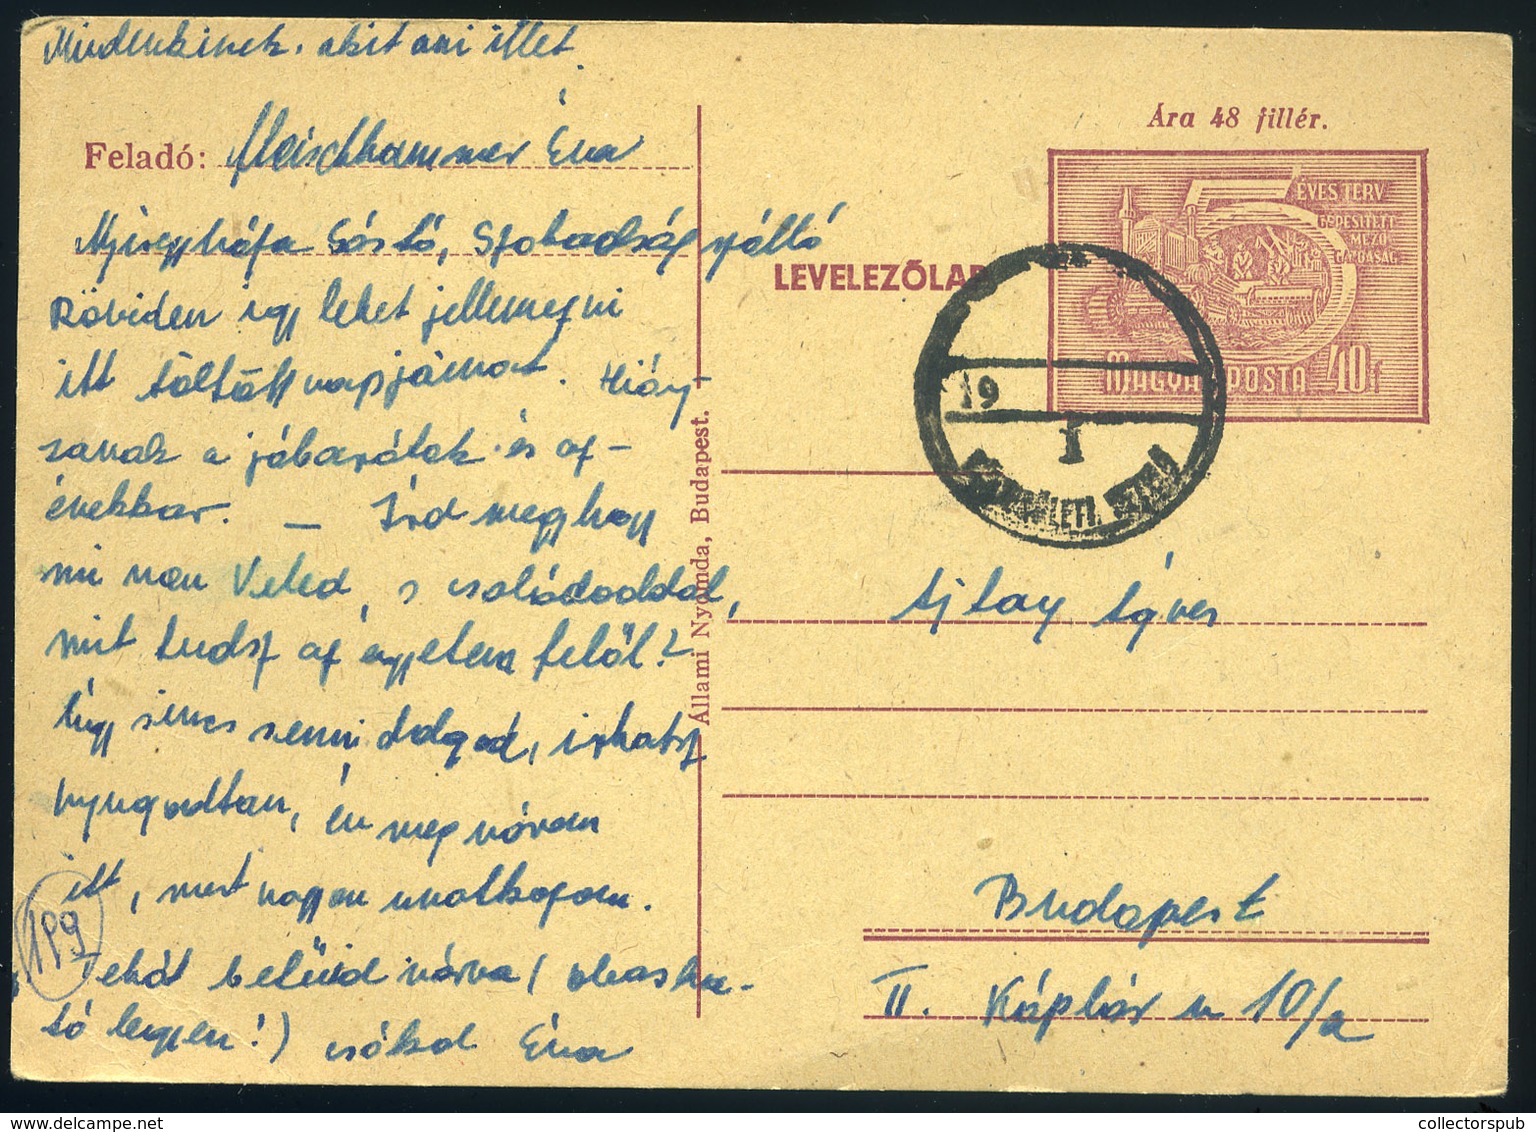 Mindenkinek, akit ami illet.
Feladó: Fleischhammer Éva
Nyíregyháza Sóstó, Szabadság szálló
Röviden így lehet jellemezni
itt töltött napjaimat. Hiány-
zanak a jóbarátok és az
énekkar. — Írd meg hogy
mi van Veled, s családoddal,
mit tudsz az egyetem felől?
Úgy sincs semmi dolgod, írhatsz
nyugodtan, én meg várom
itt, mert nagyon unatkozom.
Tehát belűid várva (olvasha-
tó legyen!) csókol Éva
189
Állami Nyomda, Budapest.
Ára 48 fillér.
ÉVES TERV
GÉPESÍTETT
MEZŐ
GAZDASÁG
MAGYAR POSTA 40f
LEVELEZŐLAP
19
I
Ajtay Ágnes
Budapest
II. Káplár u 10/a
collectorspub